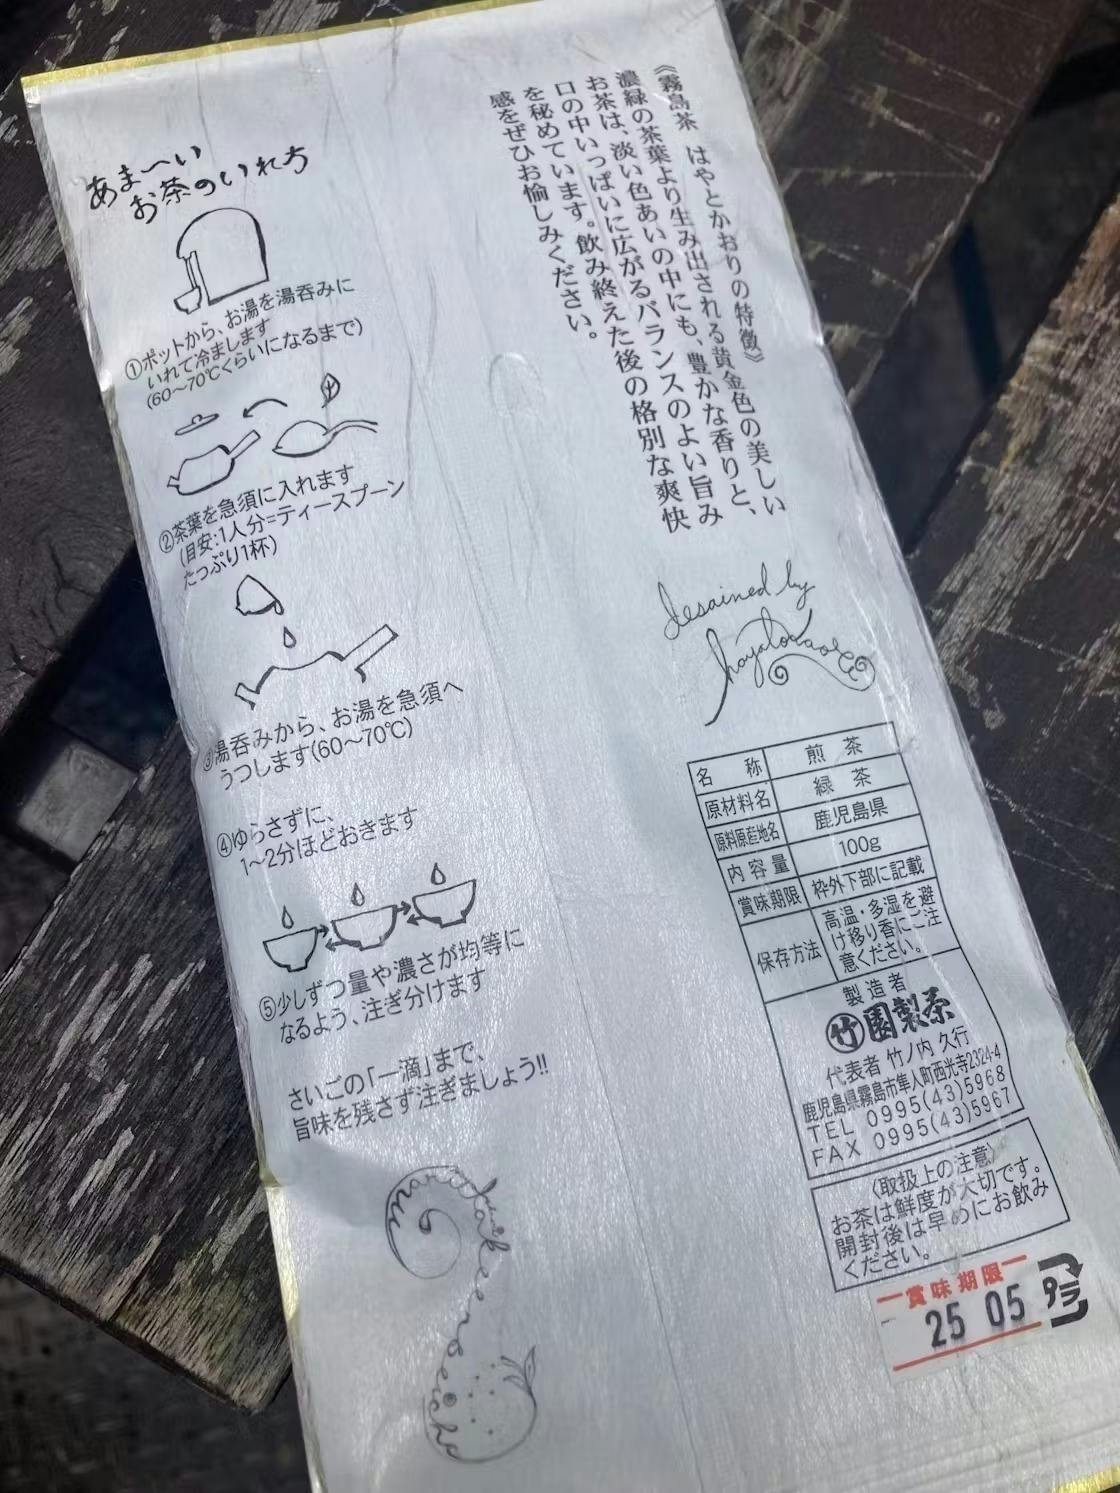 《霧島茶 はやとかおりの特徴》
濃緑の茶葉より生み出される黄金色の美しい
お茶は、淡い色あいの中にも、豊かな香りと、
口の中いっぱいに広がるバランスのよい旨み
を秘めています。飲み終えた後の格別な爽快
感をぜひお愉しみください。
あま〜い
お茶のいれ方
①ポットから、お湯を湯呑みに
いれて冷まします
(60〜70℃くらいになるまで)
②茶葉を急須に入れます
(目安:1人分=ティースプーン
たっぷり1杯)
③湯呑みから、お湯を急須へ
うつします(60〜70℃)
④ゆらさずに、
1〜2分ほどおきます
⑤少しずつ量や濃さが均等に
なるよう、注ぎ分けます
さいごの「一滴」まで、
旨味を残さず注ぎましょう!!
desained by
名 称 煎 茶
原材料名 緑 茶
原料原産地名 鹿児島県
内容量 100g
賞味期限 枠外下部に記載
保存方法 高温・多湿を避
け移り香にご注
意ください。
製造者
竹 園製茶
代表者 竹ノ内 久行
鹿児島県霧島市隼人町西光寺2324-4
TEL 0995(43)5968
FAX 0995(43)5967
〈取扱上の注意〉
お茶は鮮度が大切です。
開封後は早めにお飲み
ください。
賞味期限
25 05
プラ